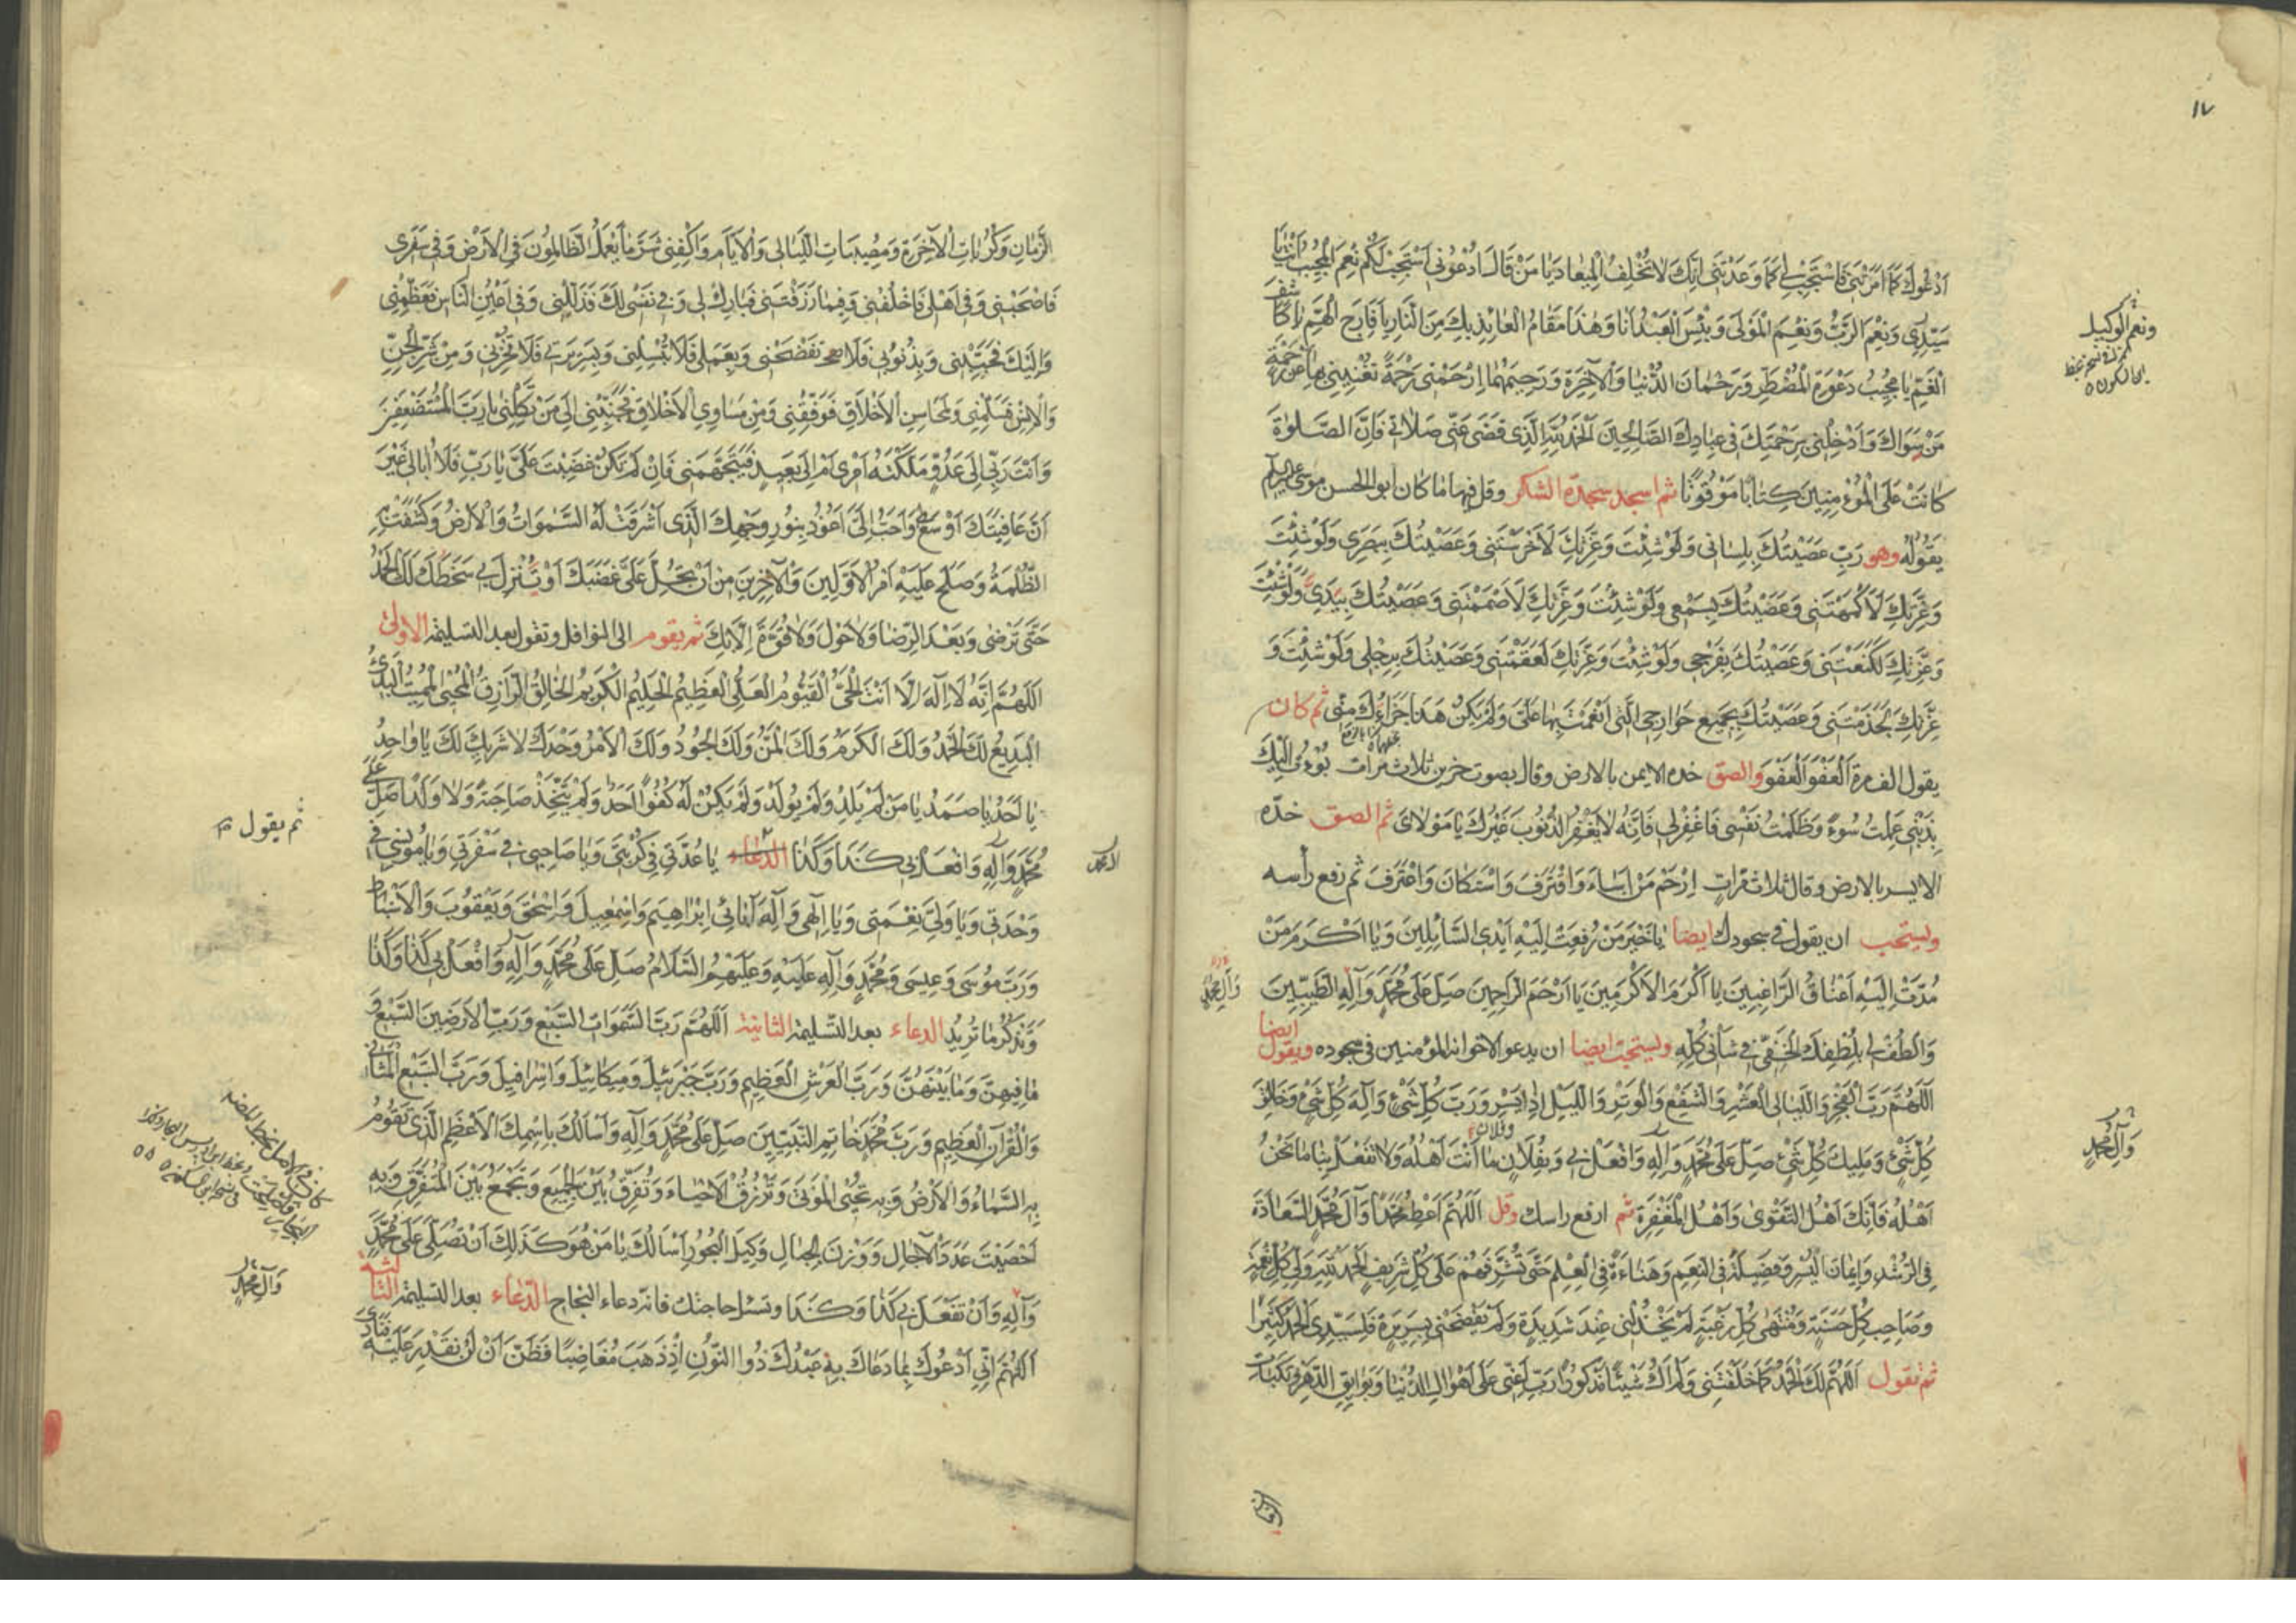 ١٧
اَدْعُوكَ كَمَا اَمَرْتَنِي فَاسْتَجِبْ لِي كَمَا وَعَدْتَنِي اِنَّكَ لَا تُخْلِفُ الْمِيعَادَ يَا مَنْ قَالَ ادْعُونِي اَسْتَجِبْ لَكُمْ نِعْمَ الْمُجِيبُ اَنْتَ يَا
سَيِّدِي وَنِعْمَ الرَّبُّ وَنِعْمَ الْمَوْلَى وَبِئْسَ الْعَبْدُ اَنَا وَهٰذَا مَقَامُ الْعَائِذِ بِكَ مِنَ النَّارِ يَا فَارِجَ الْهَمِّ يَا كَاشِفَ
الْغَمِّ يَا مُجِيبُ دَعْوَةِ الْمُضْطَرِّ وَرَحْمَانَ الدُّنْيَا وَالْآخِرَةِ وَرَحِيمَهُمَا اِرْحَمْنِي رَحْمَةً تُغْنِينِي بِهَا عَنْ رَحْمَةِ
مَنْ سِوَاكَ وَاَدْخِلْنِي بِرَحْمَتِكَ فِي عِبَادِكَ الصَّالِحِينَ اَلْحَمْدُ لِلَّهِ الَّذِي قَضَى عَنِّي صَلَاتِي فَاِنَّ الصَّلٰوةَ
كَانَتْ عَلَى الْمُؤْمِنِينَ كِتَابًا مَوْقُوتًا ثم اسجد سجدة الشكر وقل فيها ما كان ابو الحسن موسى عليه السلام
يقوله وهو رَبِّ عَصَيْتُكَ بِلِسَانِي وَلَوْ شِئْتَ وَعِزَّتِكَ لَاَخْرَسْتَنِي وَعَصَيْتُكَ بِبَصَرِي وَلَوْ شِئْتَ
وَعِزَّتِكَ لَاَكْمَهْتَنِي وَعَصَيْتُكَ بِسَمْعِي وَلَوْ شِئْتَ وَعِزَّتِكَ لَاَصْمَمْتَنِي وَعَصَيْتُكَ بِيَدِي وَلَوْ شِئْتَ
وَعِزَّتِكَ لَكَنَّعْتَنِي وَعَصَيْتُكَ بِفَرْجِي وَلَوْ شِئْتَ وَعِزَّتِكَ لَعَقَمْتَنِي وَعَصَيْتُكَ بِرِجْلِي وَلَوْ شِئْتَ وَ
عِزَّتِكَ لَجَذَمْتَنِي وَعَصَيْتُكَ بِجَمِيعِ جَوَارِحِي الَّتِي اَنْعَمْتَ بِهَا عَلَيَّ وَلَمْ يَكُنْ هَذَا جَزَاؤُكَ مِنِّي ثم كان
يقول الف مرة اَلْعَفْوَ الْعَفْوَ والصق خده الايمن بالارض وقال بصوت حزين ثلاث مرات بُؤْتُ اِلَيْكَ
بِذَنْبِي عَمِلْتُ سُوءً وَظَلَمْتُ نَفْسِي فَاغْفِرْ لِي فَاِنَّهُ لَا يَغْفِرُ الذُّنُوبَ غَيْرُكَ يَا مَوْلَايَ ثم الصق خدّه
الايسر بالارض وقال ثلاث مرات اِرْحَمْ مَنْ اَسَاءَ وَاقْتَرَفَ وَاسْتَكَانَ وَاعْتَرَفَ ثم رفع رأسه
ويستحب ان يقول في سجودك ايضا يَا خَيْرَ مَنْ رُفِعَتْ اِلَيْهِ اَيْدِي السَّائِلِينَ وَيَا اَكْرَمَ مَنْ
مُدَّتْ اِلَيْهِ اَعْنَاقُ الرَّاغِبِينَ يَا اَكْرَمَ الْاَكْرَمِينَ يَا اَرْحَمَ الرَّاحِمِينَ صَلِّ عَلَى مُحَمَّدٍ وَآلِهِ الطَّيِّبِينَ
وَالْطُفْ لِي بِلُطْفِكَ الْخَفِيِّ فِي شَأْنِي كُلِّهِ ويستحب ايضا ان يدعو لاخوانه المؤمنين في سجوده ويقول ايضا
اَللّٰهُمَّ رَبَّ الْفَجْرِ وَاللَّيَالِي الْعَشْرِ وَالشَّفْعِ وَالْوَتْرِ وَاللَّيْلِ اِذَا يَسْرِ وَرَبَّ كُلِّ شَيْءٍ وَاِلٰهَ كُلِّ شَيْءٍ وَخَالِقَ
كُلِّ شَيْءٍ وَمَلِيكَ كُلِّ شَيْءٍ صَلِّ عَلَى مُحَمَّدٍ وَآلِهِ وَافْعَلْ بِي وَبِفُلَانٍ وفلان مَا اَنْتَ اَهْلُهُ وَلَا تَفْعَلْ بِنَا مَا نَحْنُ
اَهْلُهُ فَاِنَّكَ اَهْلُ التَّقْوَى وَاَهْلُ الْمَغْفِرَةِ ثم ارفع راسك وقل اَللّٰهُمَّ اَعْطِ مُحَمَّدًا وَآلَ مُحَمَّدٍ السَّعَادَةَ
فِي الرُّشْدِ وَاِيمَانَ الْيُسْرِ وَفَضِيلَةً فِي النِّعَمِ وَهَنَاءَةً فِي الْعِلْمِ حَتَّى تُشَرِّفَهُمْ عَلَى كُلِّ شَرِيفٍ اَلْحَمْدُ لِلَّهِ وَلِيِّ كُلِّ نِعْمَةٍ
وَصَاحِبِ كُلِّ حَسَنَةٍ وَمُنْتَهَى كُلِّ رَغْبَةٍ لَمْ يَخْذُلْنِي عِنْدَ شَدِيدَةٍ وَلَمْ يَفْضَحْنِي بِسَرِيرَةٍ فَلِسَيِّدِي الْحَمْدُ كَثِيرًا
ثم تقول اَللّٰهُمَّ لَكَ الْحَمْدُ كَمَا خَلَقْتَنِي وَلَمْ اَكُ شَيْئًا مَذْكُورًا رَبِّ اَعِنِّي عَلَى اَهْوَالِ الدُّنْيَا وَبَوَائِقِ الدَّهْرِ وَنَكَبَاتِ
ونعم الوكيل
وَآلِ مُحَمَّدٍ
وَآلِ مُحَمَّدٍ
الزمان
الزَّمَانِ وَكُرُبَاتِ الْآخِرَةِ وَمُصِيبَاتِ اللَّيَالِي وَالْاَيَّامِ وَاكْفِنِي شَرَّ مَا يَعْمَلُ الظَّالِمُونَ فِي الْاَرْضِ وَفِي سَفَرِي
فَاصْحَبْنِي وَفِي اَهْلِي فَاخْلُفْنِي وَفِيمَا رَزَقْتَنِي فَبَارِكْ لِي وَفِي نَفْسِي لَكَ فَذَلِّلْنِي وَفِي اَعْيُنِ النَّاسِ فَعَظِّمْنِي
وَاِلَيْكَ فَحَبِّبْنِي وَبِذُنُوبِي فَلَا تَفْضَحْنِي وَبِعَمَلِي فَلَا تُبْسِلْنِي وَبِسَرِيرَتِي فَلَا تُخْزِنِي وَمِنْ شَرِّ الْجِنِّ
وَالْاِنْسِ فَسَلِّمْنِي وَلِمَحَاسِنِ الْاَخْلَاقِ فَوَفِّقْنِي وَمِنْ مَسَاوِي الْاَخْلَاقِ فَجَنِّبْنِي اِلَى مَنْ تَكِلُنِي يَا رَبَّ الْمُسْتَضْعَفِينَ
وَاَنْتَ رَبِّي اِلَى عَدُوٍّ مَلَّكْتَهُ اَمْرِي اَمْ اِلَى بَعِيدٍ فَيَتَجَهَّمَنِي فَاِنْ لَمْ تَكُنْ غَضِبْتَ عَلَيَّ يَا رَبِّ فَلَا اُبَالِي غَيْرَ
اَنَّ عَافِيَتَكَ اَوْسَعُ وَاَحَبُّ اِلَيَّ اَعُوذُ بِنُورِ وَجْهِكَ الَّذِي اَشْرَقَتْ لَهُ السَّمٰوَاتُ وَالْاَرْضُ وَكُشِفَتْ بِهِ
الظُّلْمَةُ وَصَلَحَ عَلَيْهِ اَمْرُ الْاَوَّلِينَ وَالْآخِرِينَ مِنْ اَنْ يَحِلَّ عَلَيَّ غَضَبُكَ اَوْ يَنْزِلَ بِي سَخَطُكَ لَكَ الْحَمْدُ
حَتَّى تَرْضَى وَبَعْدَ الرِّضَا وَلَا حَوْلَ وَلَا قُوَّةَ اِلَّا بِكَ ثم يقوم الى النوافل وتقول بعد التسليمة الاولى
اَللّٰهُمَّ اِنَّهُ لَا اِلٰهَ اِلَّا اَنْتَ الْحَيُّ الْقَيُّومُ الْعَلِيُّ الْعَظِيمُ الْحَلِيمُ الْكَرِيمُ الْخَالِقُ الرَّازِقُ الْمُحْيِي الْمُمِيتُ الْبَدِيءُ
الْبَدِيعُ لَكَ الْحَمْدُ وَلَكَ الْكَرَمُ وَلَكَ الْمَنُّ وَلَكَ الْجُودُ وَلَكَ الْاَمْرُ وَحْدَكَ لَا شَرِيكَ لَكَ يَا وَاحِدُ
يَا اَحَدُ يَا صَمَدُ يَا مَنْ لَمْ يَلِدْ وَلَمْ يُولَدْ وَلَمْ يَكُنْ لَهُ كُفُوًا اَحَدٌ وَلَمْ يَتَّخِذْ صَاحِبَةً وَلَا وَلَدًا صَلِّ عَلَى
مُحَمَّدٍ وَآلِهِ وَافْعَلْ بِي كَذَا وَكَذَا الدعاء يَا عُدَّتِي فِي كُرْبَتِي وَيَا صَاحِبِي فِي سَفْرَتِي وَيَا مُونِسِي فِي
وَحْدَتِي وَيَا وَلِيَّ نِعْمَتِي وَيَا اِلٰهِي وَاِلٰهَ آبَائِي اِبْرَاهِيمَ وَاِسْمٰعِيلَ وَاِسْحٰقَ وَيَعْقُوبَ وَالْاَسْبَاطِ
وَرَبَّ مُوسَى وَعِيسَى وَمُحَمَّدٍ وَآلِهِ عَلَيْهِ وَعَلَيْهِمُ السَّلَامُ صَلِّ عَلَى مُحَمَّدٍ وَآلِهِ وَافْعَلْ بِي كَذَا وَكَذَا
وَتَذْكُرُ مَا تُرِيدُ الدعاء بعد التسليمة الثانية اَللّٰهُمَّ رَبَّ السَّمٰوَاتِ السَّبْعِ وَرَبَّ الْاَرَضِينَ السَّبْعِ وَ
مَا فِيهِنَّ وَمَا بَيْنَهُنَّ وَرَبَّ الْعَرْشِ الْعَظِيمِ وَرَبَّ جَبْرَئِيلَ وَمِيكَائِيلَ وَاِسْرَافِيلَ وَرَبَّ السَّبْعِ الْمَثَانِي
وَالْقُرْآنِ الْعَظِيمِ وَرَبَّ مُحَمَّدٍ خَاتِمِ النَّبِيِّينَ صَلِّ عَلَى مُحَمَّدٍ وَآلِهِ وَاَسْاَلُكَ بِاسْمِكَ الْاَعْظَمِ الَّذِي تَقُومُ
بِهِ السَّمَاءُ وَالْاَرْضُ وَبِهِ تُحْيِي الْمَوْتَى وَتَرْزُقُ الْاَحْيَاءَ وَتُفَرِّقُ بَيْنَ الْجَمِيعِ وَتَجْمَعُ بَيْنَ الْمُتَفَرِّقِ وَبِهِ
اَحْصَيْتَ عَدَدَ الْآجَالِ وَوَزْنَ الْجِبَالِ وَكَيْلَ الْبُحُورِ اَسْاَلُكَ يَا مَنْ هُوَ كَذٰلِكَ اَنْ تُصَلِّيَ عَلَى مُحَمَّدٍ
وَآلِهِ وَاَنْ تَفْعَلَ بِي كَذَا وَكَذَا وتسئل حاجتك فانه دعاء النجاح الدعاء بعد التسليمة الثالثة
اَللّٰهُمَّ اِنِّي اَدْعُوكَ بِمَا دَعَاكَ بِهِ عَبْدُكَ ذُو النُّونِ اِذْ ذَهَبَ مُغَاضِبًا فَظَنَّ اَنْ لَنْ نَقْدِرَ عَلَيْهِ فَنَادَى
ثم يقول
وَآلِ مُحَمَّدٍ